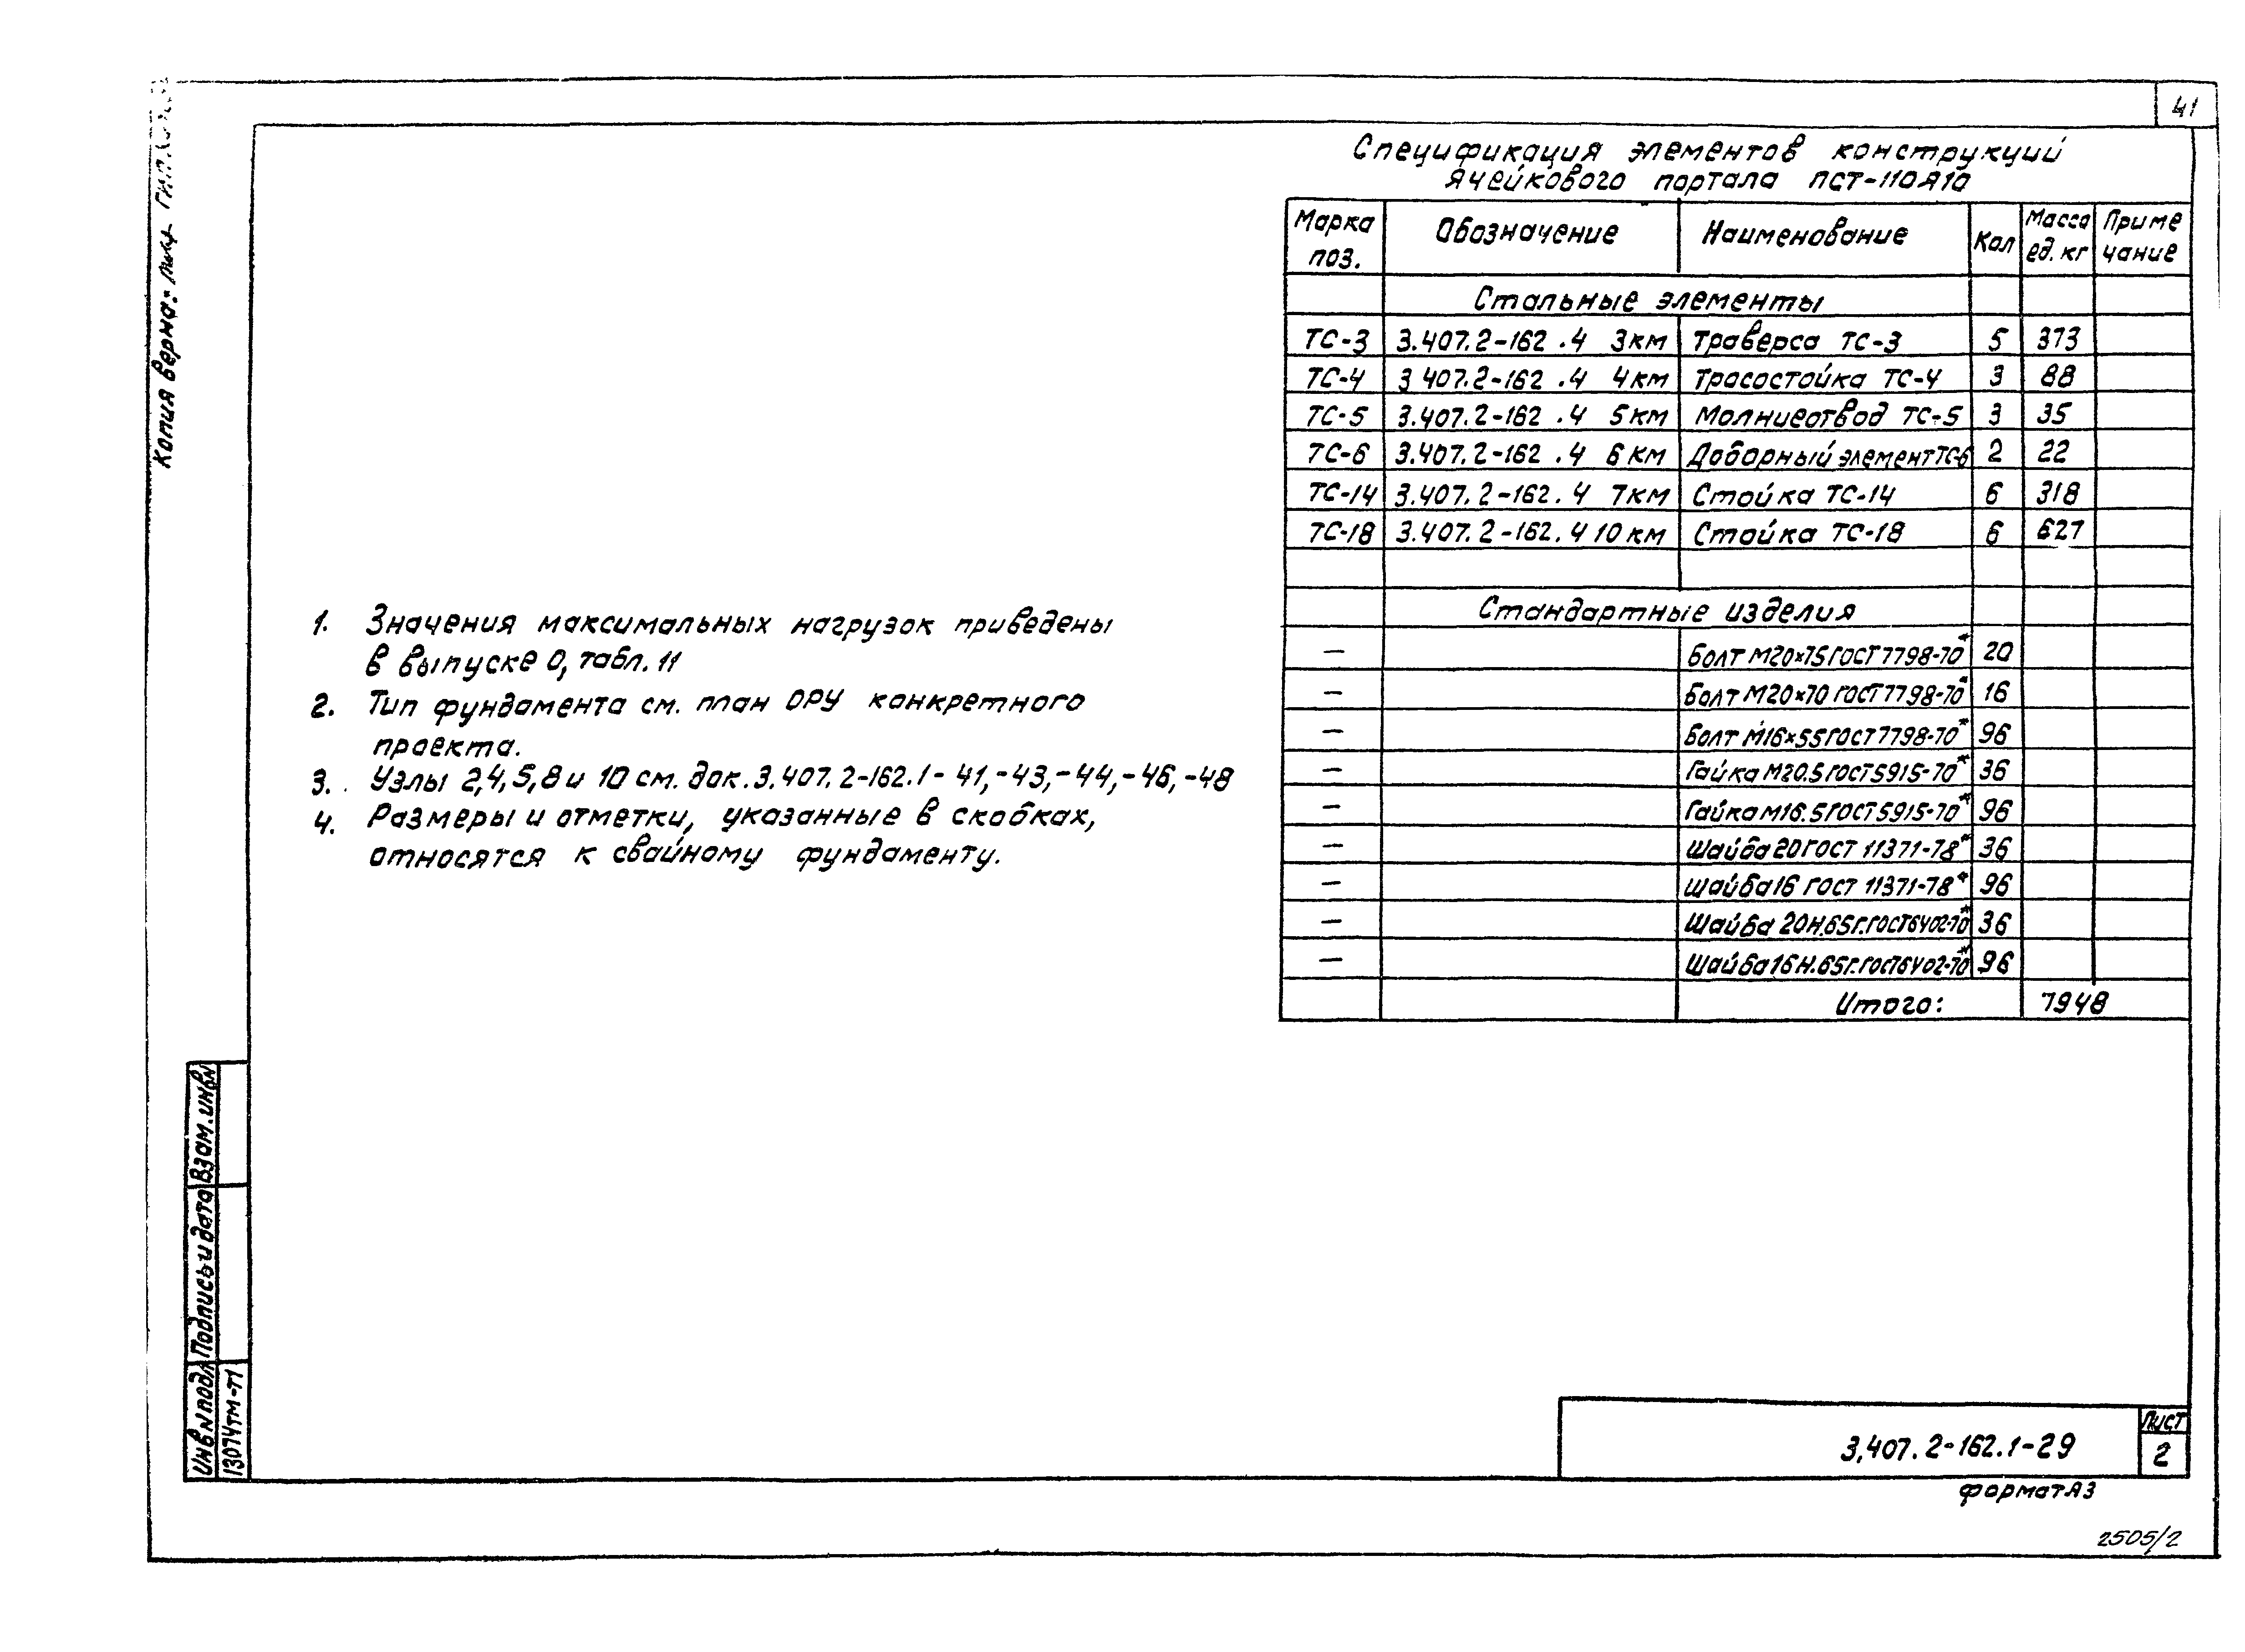 41
Копия верна:
Спецификация элементов конструкций
ячейкового портала ПСТ-110Я10
Марка поз. Обозначение Наименование Кол Масса ед. кг Приме чание
Стальные элементы
ТС-3 3.407.2-162 .4 3км Траверса ТС-3 5 373
ТС-4 3 407.2-162 .4 4км Тросостойка ТС-4 3 88
ТС-5 3.407.2-162 .4 5км Молниеотвод ТС-5 3 35
ТС-6 3.407.2-162 .4 6 км Доборный элемент ТС-6 2 22
ТС-14 3.407.2-162.4 7км Стойка ТС-14 6 318
ТС-18 3.407.2-162.4 10 км Стойка ТС-18 6 627
Стандартные изделия
— Болт М20×75 ГОСТ 7798-70* 20
— Болт М20×70 ГОСТ 7798-70* 16
— Болт М16×55 ГОСТ 7798-70* 96
— Гайка М20.5 ГОСТ 5915-70* 36
— Гайка М16.5 ГОСТ 5915-70* 96
— Шайба 20 ГОСТ 11371-78* 36
— Шайба 16 ГОСТ 11371-78* 96
— Шайба 20Н.65Г. ГОСТ 6402-70* 36
— Шайба 16Н.65Г. ГОСТ 6402-70* 96
Итого: 7948
1. Значения максимальных нагрузок приведены
в выпуске 0, табл. 11
2. Тип фундамента см. план ОРУ конкретного
проекта.
3. Узлы 2,4,5,8 и 10 см. док. 3.407.2-162.1-41,-43,-44,-46,-48
4. Размеры и отметки, указанные в скобках,
относятся к свайному фундаменту.
Взам. инв N
Подпись и дата
Инв N подл
13074тм-Т1
3.407.2-162.1-29
Лист
2
Формат А3
2505/2